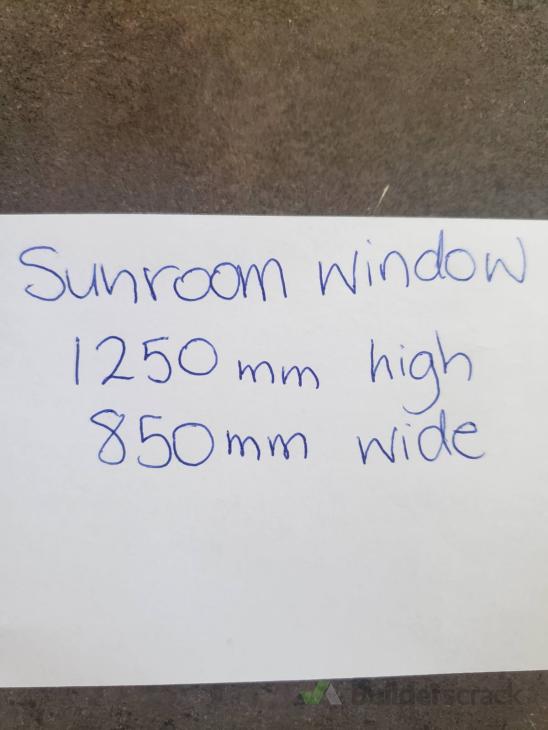 Sunroom window
1250mm high
850mm wide
builderscrack